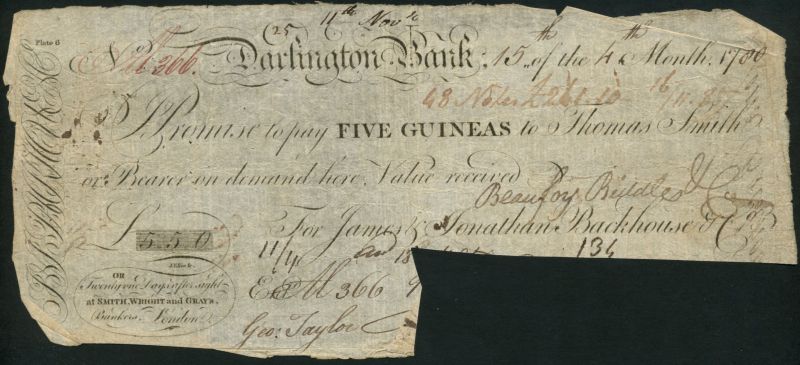 11th Nov
Plate 6
25
No M 366. Darlington Bank, 15th of the 4th Month, 1780
48 Notes £
I Promise to pay FIVE GUINEAS to Thomas Smith
or Bearer on demand here Value received
Beaufoy Biddle &
£ 5 5 0 For James & Jonathan Backhouse & Co
11/4 and 136
OR
Twenty one Days after sight
at SMITH, WRIGHT and GRAY'S,
Bankers London
Ent M 366
Geo: Taylor